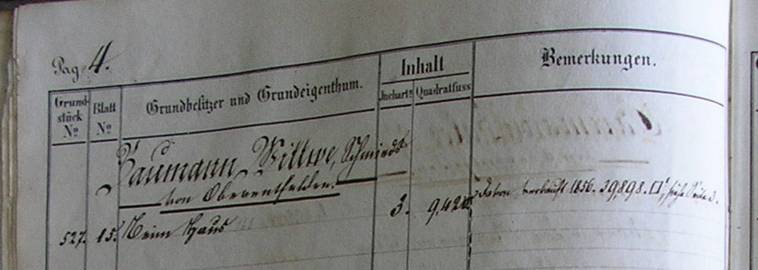 Pag. 4.
Grund-stück No Blatt No Grundbesitzer und Grundeigenthum. Inhalt Juchart. Quadratfuss Bemerkungen.
Baumann, Wittwe, Schmieds
von Oberentfelden.
527. 15. Beim Haus 3. 9,420. Davon verkauft 1856. 39,898. □', siehe Seite 3.